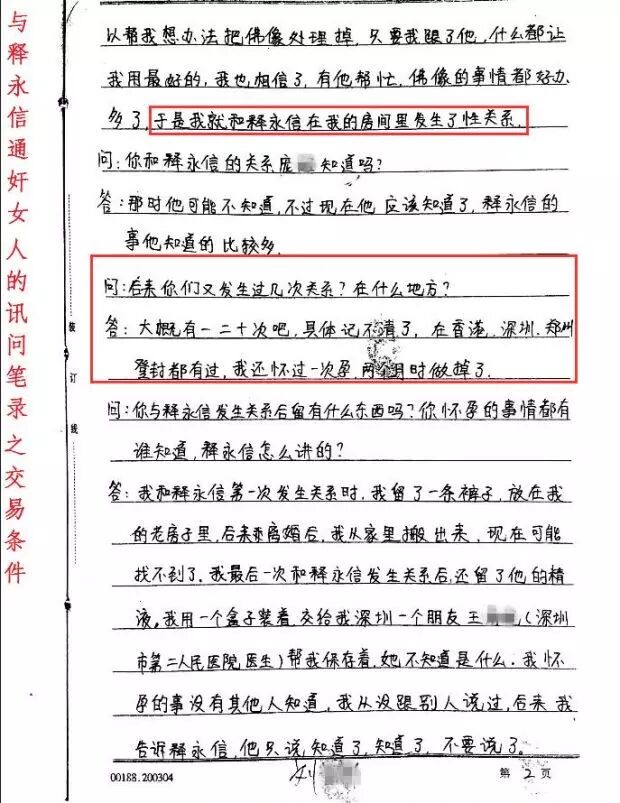 与释永信通奸女人的讯问笔录之交易条件
装订线
以帮我想办法把佛像处理掉,只要我跟了他,什么都让
我用最好的,我也相信了,有他帮忙,佛像的事情都好办
多了,于是我就和释永信在我的房间里发生了性关系.
问:你和释永信的关系庞 知道吗?
答:那时他可能不知道,不过现在他应该知道了,释永信的
事他知道的比较多.
问:后来你们又发生过几次关系?在什么地方?
答:大概有一二十次吧,具体记不清了,在香港、深圳、郑州
登封都有过,我还怀过一次孕,两个月时做掉了.
问:你与释永信发生关系后留有什么东西吗?你怀孕的事情都有
谁知道,释永信怎么讲的?
答:我和释永信第一次发生关系时,我留了一条裤子,放在我
的老房子里,后来 离婚后,我从家里搬出来,现在可能
找不到了.我最后一次和释永信发生关系后,还留了他的精
液,我用一个盒子装着,交给我深圳一个朋友王 (深圳
市第二人民医院医生)帮我保存着,她不知道是什么.我怀
孕的事没有其他人知道,我从没跟别人说过,后来我
告诉释永信,他只说知道了,知道了,不要说了。
00188.200304 第2页